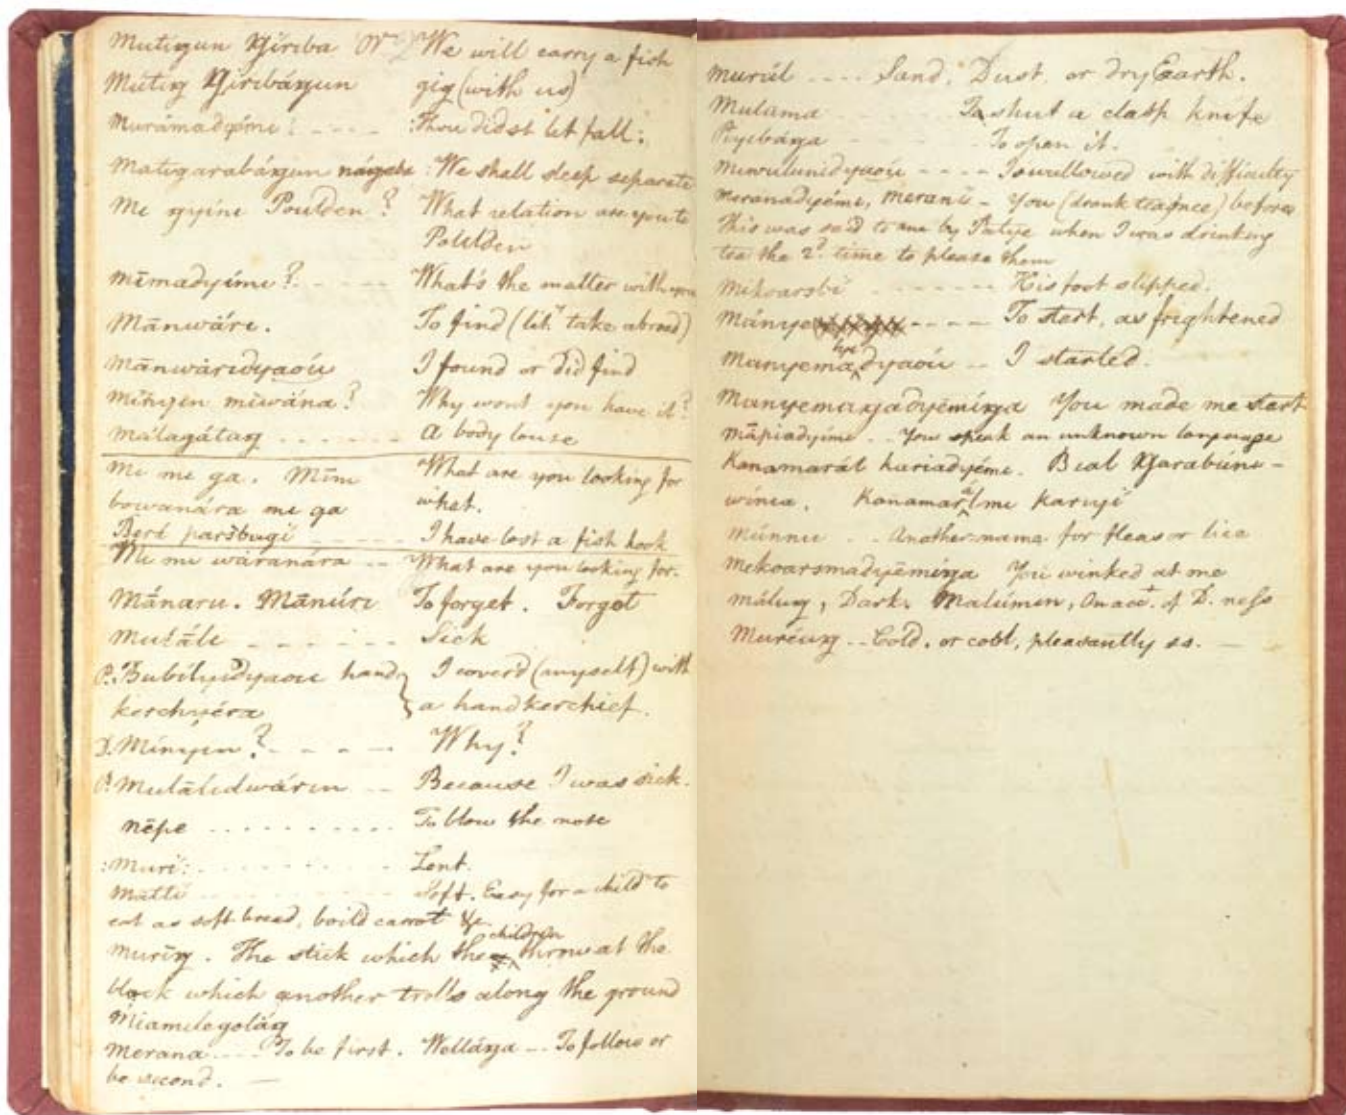 Mutiŋun Ŋíriba Or We will carry a fish
Mútiŋ Ŋiribáŋun gig (with us)
Murámadyémi : Thou didst let fall :
Matigarabáŋun náŋaba : We shall sleep separate
Me ŋyini Poulden? What relation are you to
Poulden
Mīmadyími? What's the matter with you
Mānwāri. To find (lit.y take abroad)
Mānwáridyaoú I found or did find
Mínyen mīwána? Why wont you have it?
Málagálaŋ A body louse
Mi mi ga. Mīm What are you looking for
bowanára me ga what.
Berá parsbugi I have lost a fish hook
Mi mi wáranára What are you looking for.
Mānaru. Mānúri To forget. Forgot
Mulāli Sick
P. Bubilyidyaoú hand I coverd (myself) with
kerchyéra a handkerchief.
D. Mínyen? Why?
P. Mulālidwárin Because I was sick.
nēpe To blow the nose
: Muri : Lent.
Matti Soft. Easy for a child to
eat as soft bread, boild carrot &c.
Muríŋ. The stick which the children throw at the
block which another trolls along the ground
Miamilegolāŋ
Merana To be first. Wellāŋa To follow or
be second.
Muruúl Sand. Dust. or dry Earth.
Mulama To shut a clasp knife
Piyibáŋa To open it.
Muwulunidyaoú I swallowed with difficulty
Meranadyémi, Merani - You (drank tea once) before
This was said to me by Patye when I was drinking
tea the 2d. time to please them
Mekoarsbi His foot slipped.
Mánye To start, as frightened
Manyemaŋidyaoú I started.
Manyemaŋadyēmíŋa You made me start
Māpiadyími You speak an unknown language
Kanamarál kariadyémi. Bial Ŋarabúni-
winia. Kanamarálmi Kariyí
Múnnu Another name for fleas or lice
Mekoarsmadyēmíŋa You winked at one
Máluŋ, Dark. Malúmin, On acct. of D. ness
Muréuŋ Cold, or cool, pleasantly so.